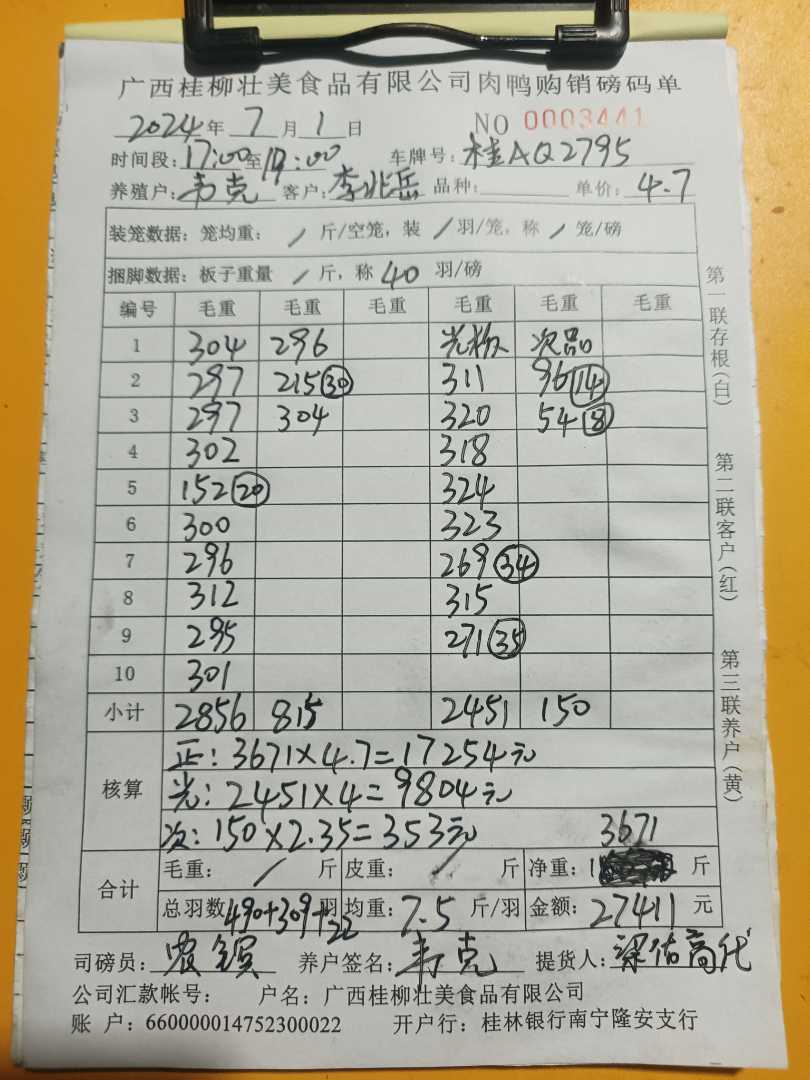 广西桂柳壮美食品有限公司肉鸭购销磅码单
2024年 7 月 1 日 NO 0003441
时间段:17:00至19:00 车牌号:桂AQ2795
养殖户:韦克 客户:李兆岳 品种: 单价:4.7
装笼数据:笼均重: / 斤/空笼,装 / 羽/笼,称 / 笼/磅
捆脚数据:板子重量 / 斤,称 40 羽/磅
编号 毛重 毛重 毛重 毛重 毛重 毛重
1 304 296 光板 次品
2 297 215(30) 311 96(14)
3 297 304 320 54(8)
4 302 318
5 152(20) 324
6 300 323
7 296 269(34)
8 312 315
9 295 271(35)
10 301
小计 2856 815 2451 150
核算 正:3671×4.7=17254元
光:2451×4=9804元
次:150×2.35=353元 3671
合计 毛重: / 斤 皮重: / 斤 净重: 斤
总羽数490+309+22羽 均重:7.5 斤/羽 金额:27411 元
司磅员: 养户签名:韦克 提货人:
公司汇款帐号: 户名:广西桂柳壮美食品有限公司
账 户:660000014752300022 开户行:桂林银行南宁隆安支行
第一联存根(白)
第二联客户(红)
第三联养户(黄)